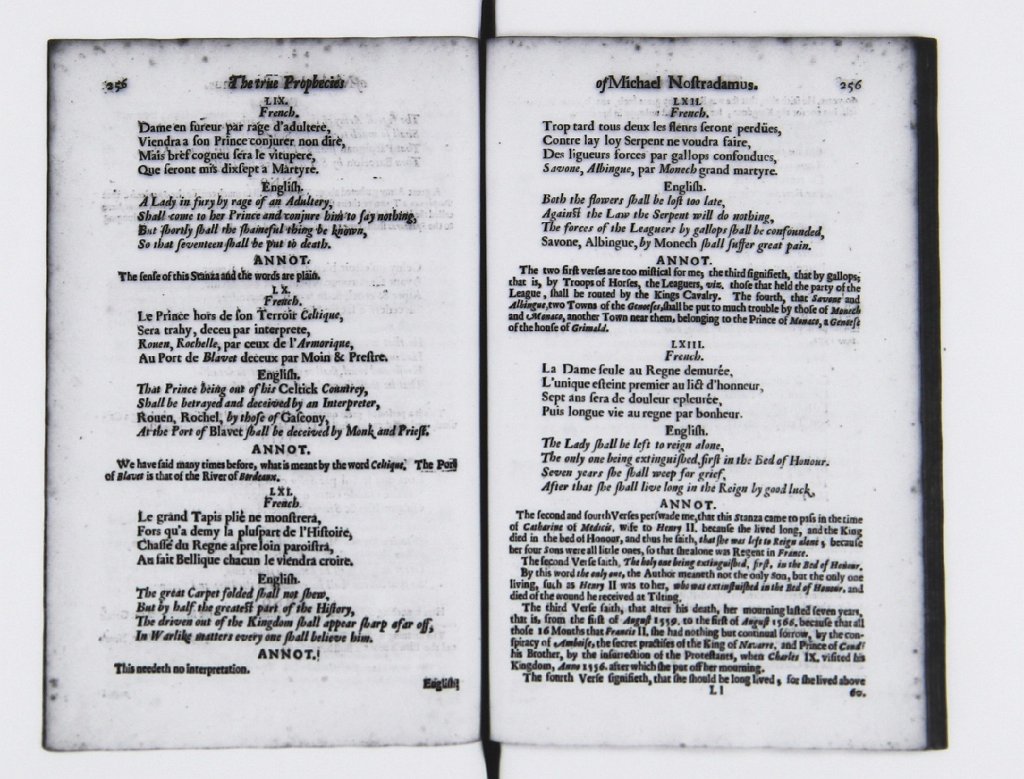 256
The true Prophecies
LIX.
French.
Dame en fureur par rage d'adultere,
Viendra a son Prince conjurer non dire,
Mais bref cogneu sera le vitupere,
Que seront mis dixsept a Martyre.
English.
A Lady in fury by rage of an Adultery,
Shall come to her Prince and conjure him to say nothing,
But shortly shall the shameful thing be known,
So that seventeen shall be put to death.
ANNOT.
The sense of this Stanza and the words are plain.
LX.
French.
Le Prince hors de son Terroir Celtique,
Sera trahy, deceu par interprete,
Rouen, Rochelle, par ceux de l'Armorique,
Au Port de Blavet deceux par Moin & Prestre.
English.
That Prince being out of his Celtick Countrey,
Shall be betrayed and deceived by an Interpreter,
Rouen, Rochel, by those of Gascony,
At the Port of Blavet shall be deceived by Monk and Priest.
ANNOT.
We have said many times before, what is meant by the word Celtique. The Port
of Blavet is that of the River of Bordeaux.
LXI.
French.
Le grand Tapis plié ne monstrera,
Fors qu'a demy la pluspart de l'Histoire,
Chassé du Regne aspre loin paroistra,
Au fait Bellique chacun le viendra croire.
English.
The great Carpet folded shall not shew,
But by half the greatest part of the History,
The driven out of the Kingdom shall appear sharp afar off,
In Warlike matters every one shall believe him.
ANNOT.
This needeth no interpretation.
English
of Michael Nostradamus.
256
LXII.
French.
Trop tard tous deux les fleurs seront perdües,
Contre lay loy Serpent ne voudra faire,
Des ligueurs forces par gallops confondues,
Savone, Albingue, par Monech grand martyre.
English.
Both the flowers shall be lost too late,
Against the Law the Serpent will do nothing,
The forces of the Leaguers by gallops shall be confounded,
Savone, Albingue, by Monech shall suffer great pain.
ANNOT.
The two first verses are too mistical for me; the third signifieth, that by gallops;
that is, by Troops of Horses, the Leaguers, viz. those that held the party of the
League, shall be routed by the Kings Cavalry. The fourth, that Savone and
Albingue, two Towns of the Genoeses, shall be put to much trouble by those of Monech
and Monaco, another Town near them, belonging to the Prince of Monaco, a Genoese
of the house of Grimald.
LXIII.
French.
La Dame seule au Regne demurée,
L'unique esteint premier au lict d'honneur,
Sept ans sera de douleur epleurée,
Puis longue vie au regne par bonheur.
English.
The Lady shall be left to reign alone,
The only one being extinguished, first in the Bed of Honour.
Seven years she shall weep for grief,
After that she shall live long in the Reign by good luck.
ANNOT.
The second and fourth Verses perswade me, that this Stanza came to pass in the time
of Catharine of Medicis, wife to Henry II. because she lived long, and the King
died in the bed of Honour, and thus he saith, that she was left to Reign alone; because
her four Sons were all little ones, so that she alone was Regent in France.
The second Verse saith, The only one being extinguished, first, in the Bed of Honour.
By this word the only one, the Author meaneth not the only Son, but the only one
living, such as Henry II was to her, who was extinguished in the Bed of Honour, and
died of the wound he received at Tilting.
The third Verse saith, that after his death, her mourning lasted seven years,
that is, from the first of August 1559. to the first of August 1566. because that all
those 16 Months that Francis II, she had nothing but continual sorrow, by the con-
spiracy of Amboise, the secret practises of the King of Navarre, and Prince of Condé
his Brother, by the insurrection of the Protestants, when Charles IX. visited his
Kingdom, Anno 1556. after which she put off her mourning.
The fourth Verse signifieth, that she should be long lived; for she lived above
Ll
60.